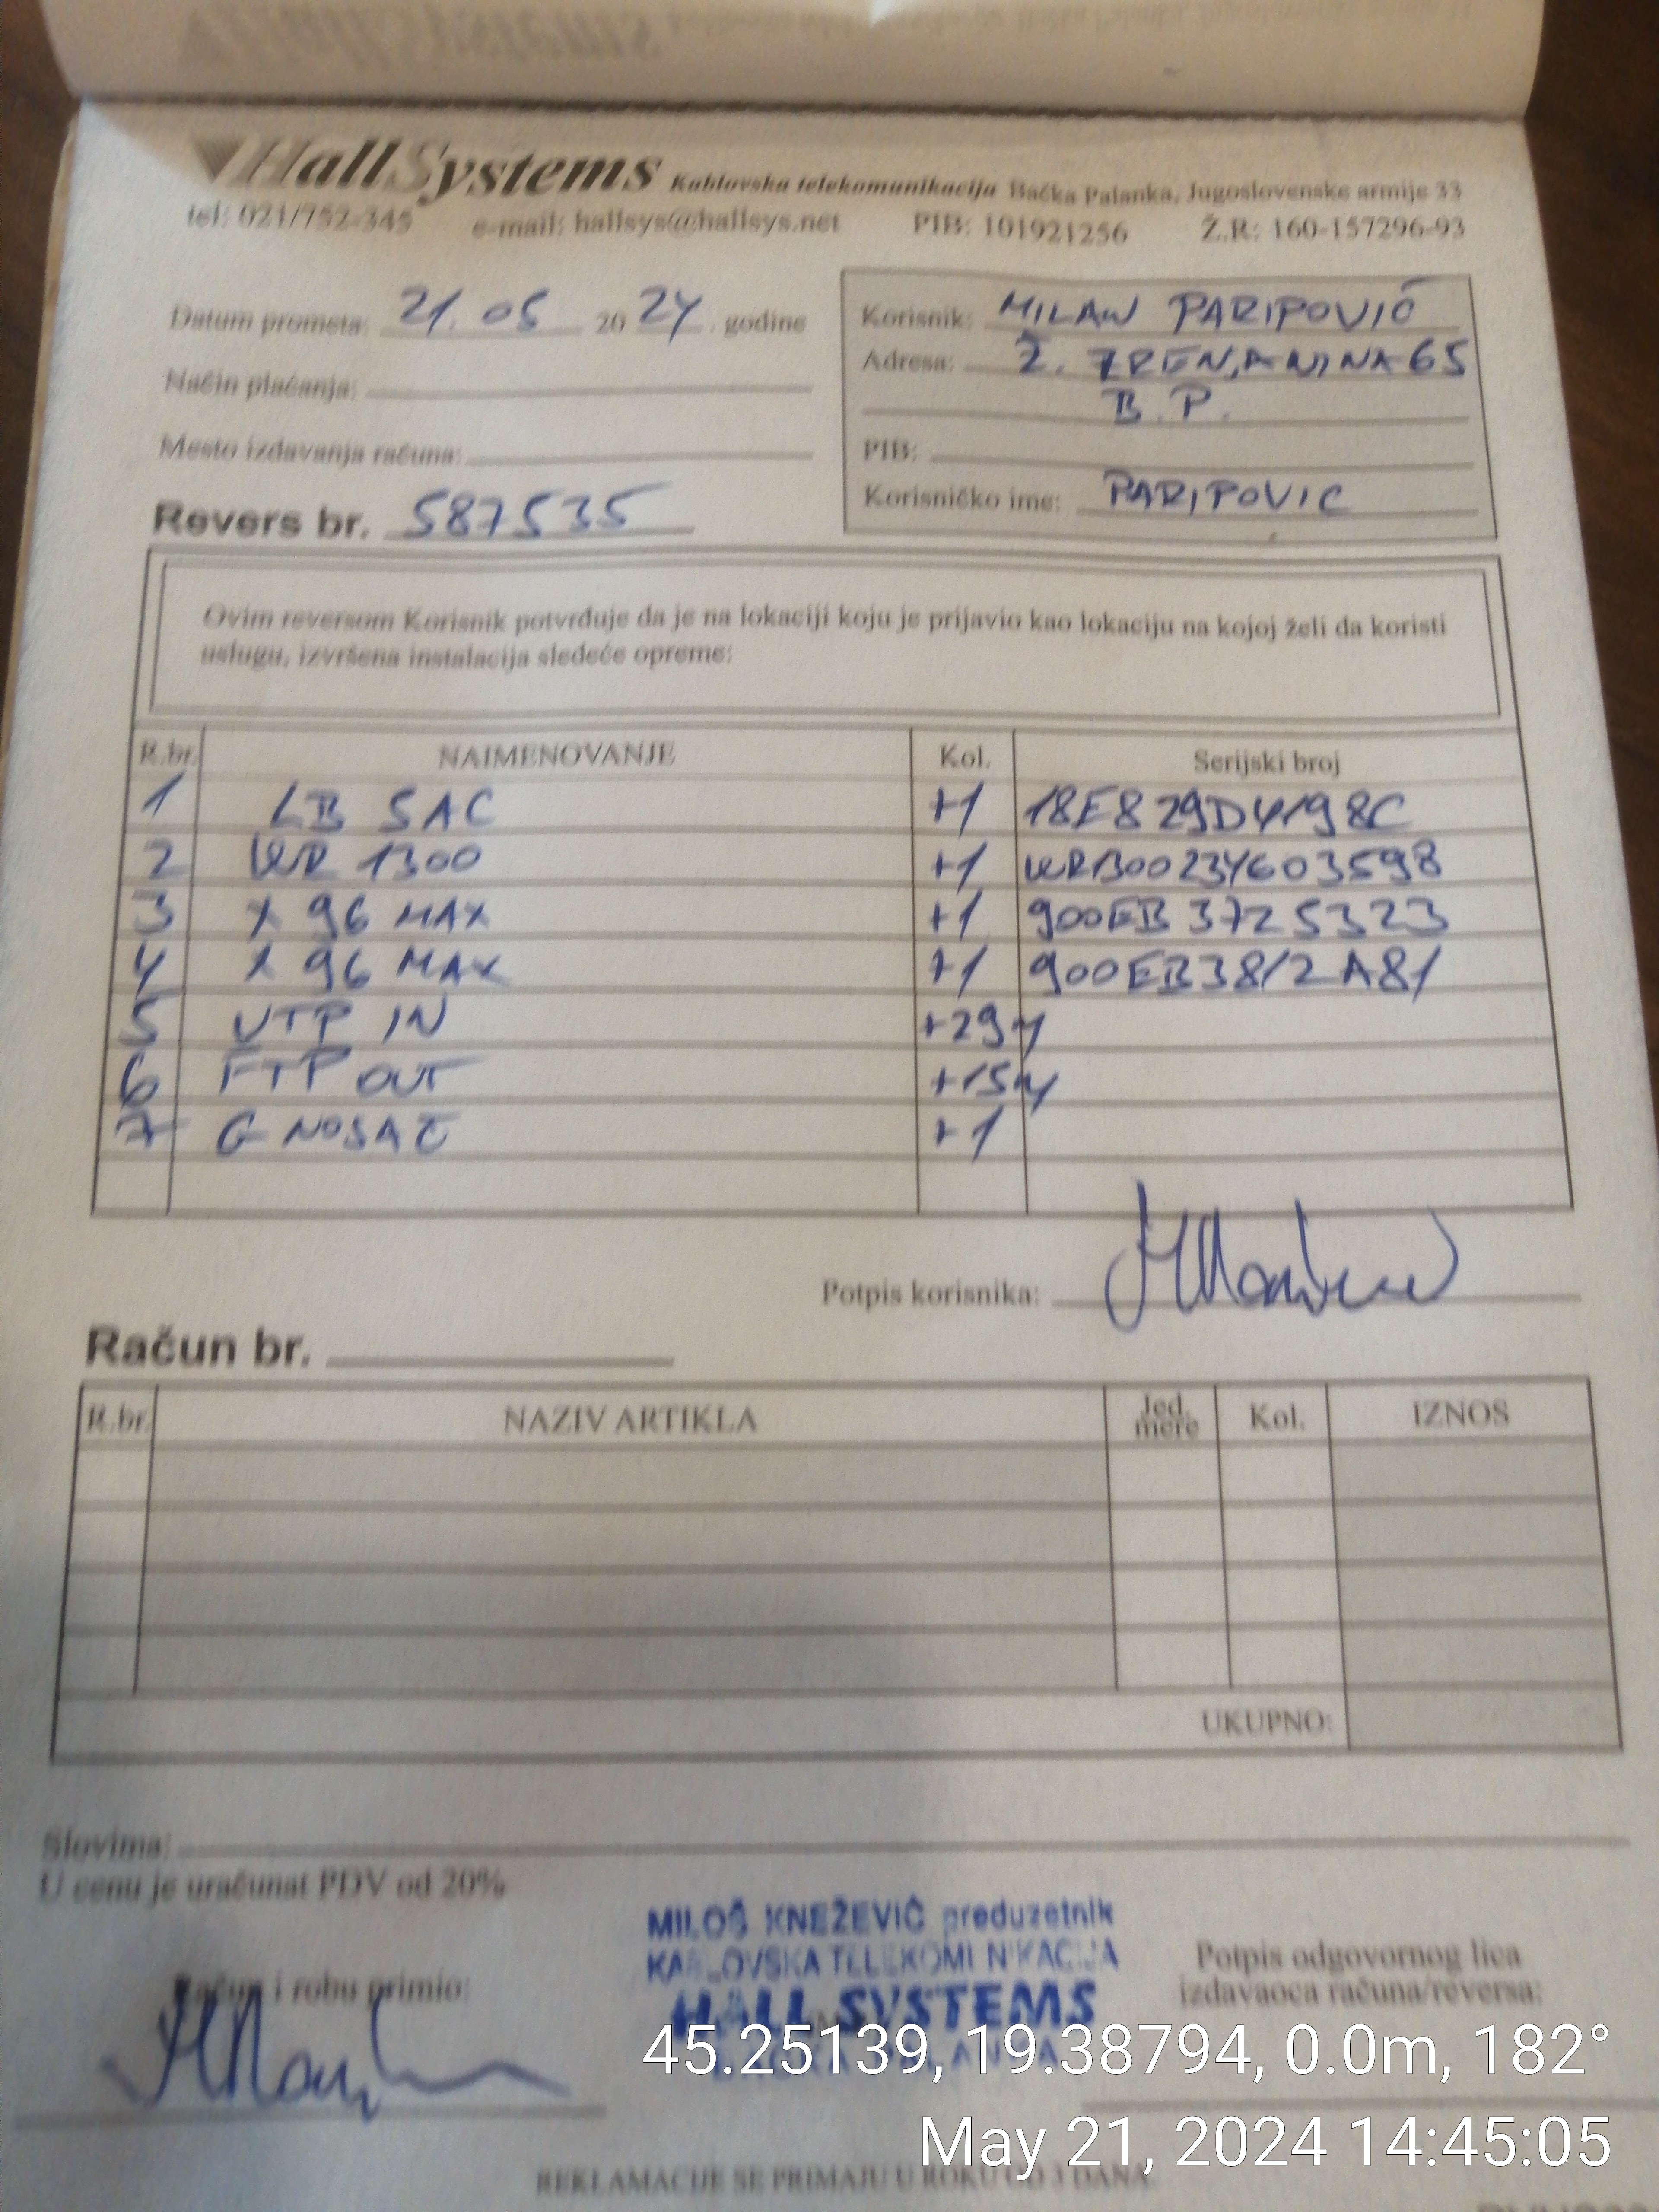 HallSystems Kablovska telekomunikacija Bačka Palanka, Jugoslovenske armije 33
tel: 021/752-345 e-mail: hallsys@hallsys.net PIB: 101921256 Ž.R: 160-157296-93
Datum prometa: 21. 05 20 24 godine
Način plaćanja:
Mesto izdavanja računa:
Revers br. 587535
Korisnik: MILAN PARIPOVIĆ
Adresa: Ž. ZRENJANINA 65
B.P.
PIB:
Korisničko ime: PARIPOVIC
Ovim reversom Korisnik potvrđuje da je na lokaciji koju je prijavio kao lokaciju na kojoj želi da koristi
uslugu, izvršena instalacija sledeće opreme:
R.br. NAIMENOVANJE Kol. Serijski broj
1 LB 5AC +1 18E829D4198C
2 WR 1300 +1 WR1300234603598
3 X 96 MAX +1 900EB3725323
4 X 96 MAX +1 900EB3812A81
5 UTP IN +29m
6 FTP OUT +15m
7 G NOSAČ +1
Potpis korisnika:
Račun br.
R.br. NAZIV ARTIKLA Jed. mere Kol. IZNOS
UKUPNO:
Slovima:
U cenu je uračunat PDV od 20%
MILOŠ KNEŽEVIĆ preduzetnik
KABLOVSKA TELEKOMUNIKACIJA
HALL SYSTEMS
Račun i robu primio:
Potpis odgovornog lica
izdavaoca računa/reversa:
45.25139, 19.38794, 0.0m, 182°
May 21, 2024 14:45:05
REKLAMACIJE SE PRIMAJU U ROKU OD 3 DANA